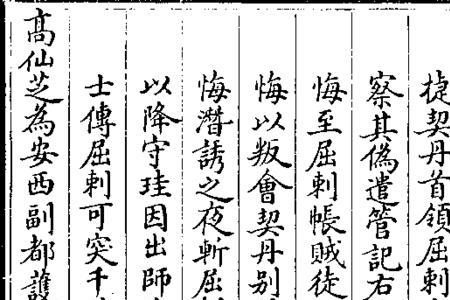 捷契丹首領屈剌
察其偽遣管記右
悔至屈剌帳賊徒
悔以叛會契丹别
悔潛誘之夜斬屈
以降守珪因出師
士傳屈剌可突千
高仙芝為安西副都護